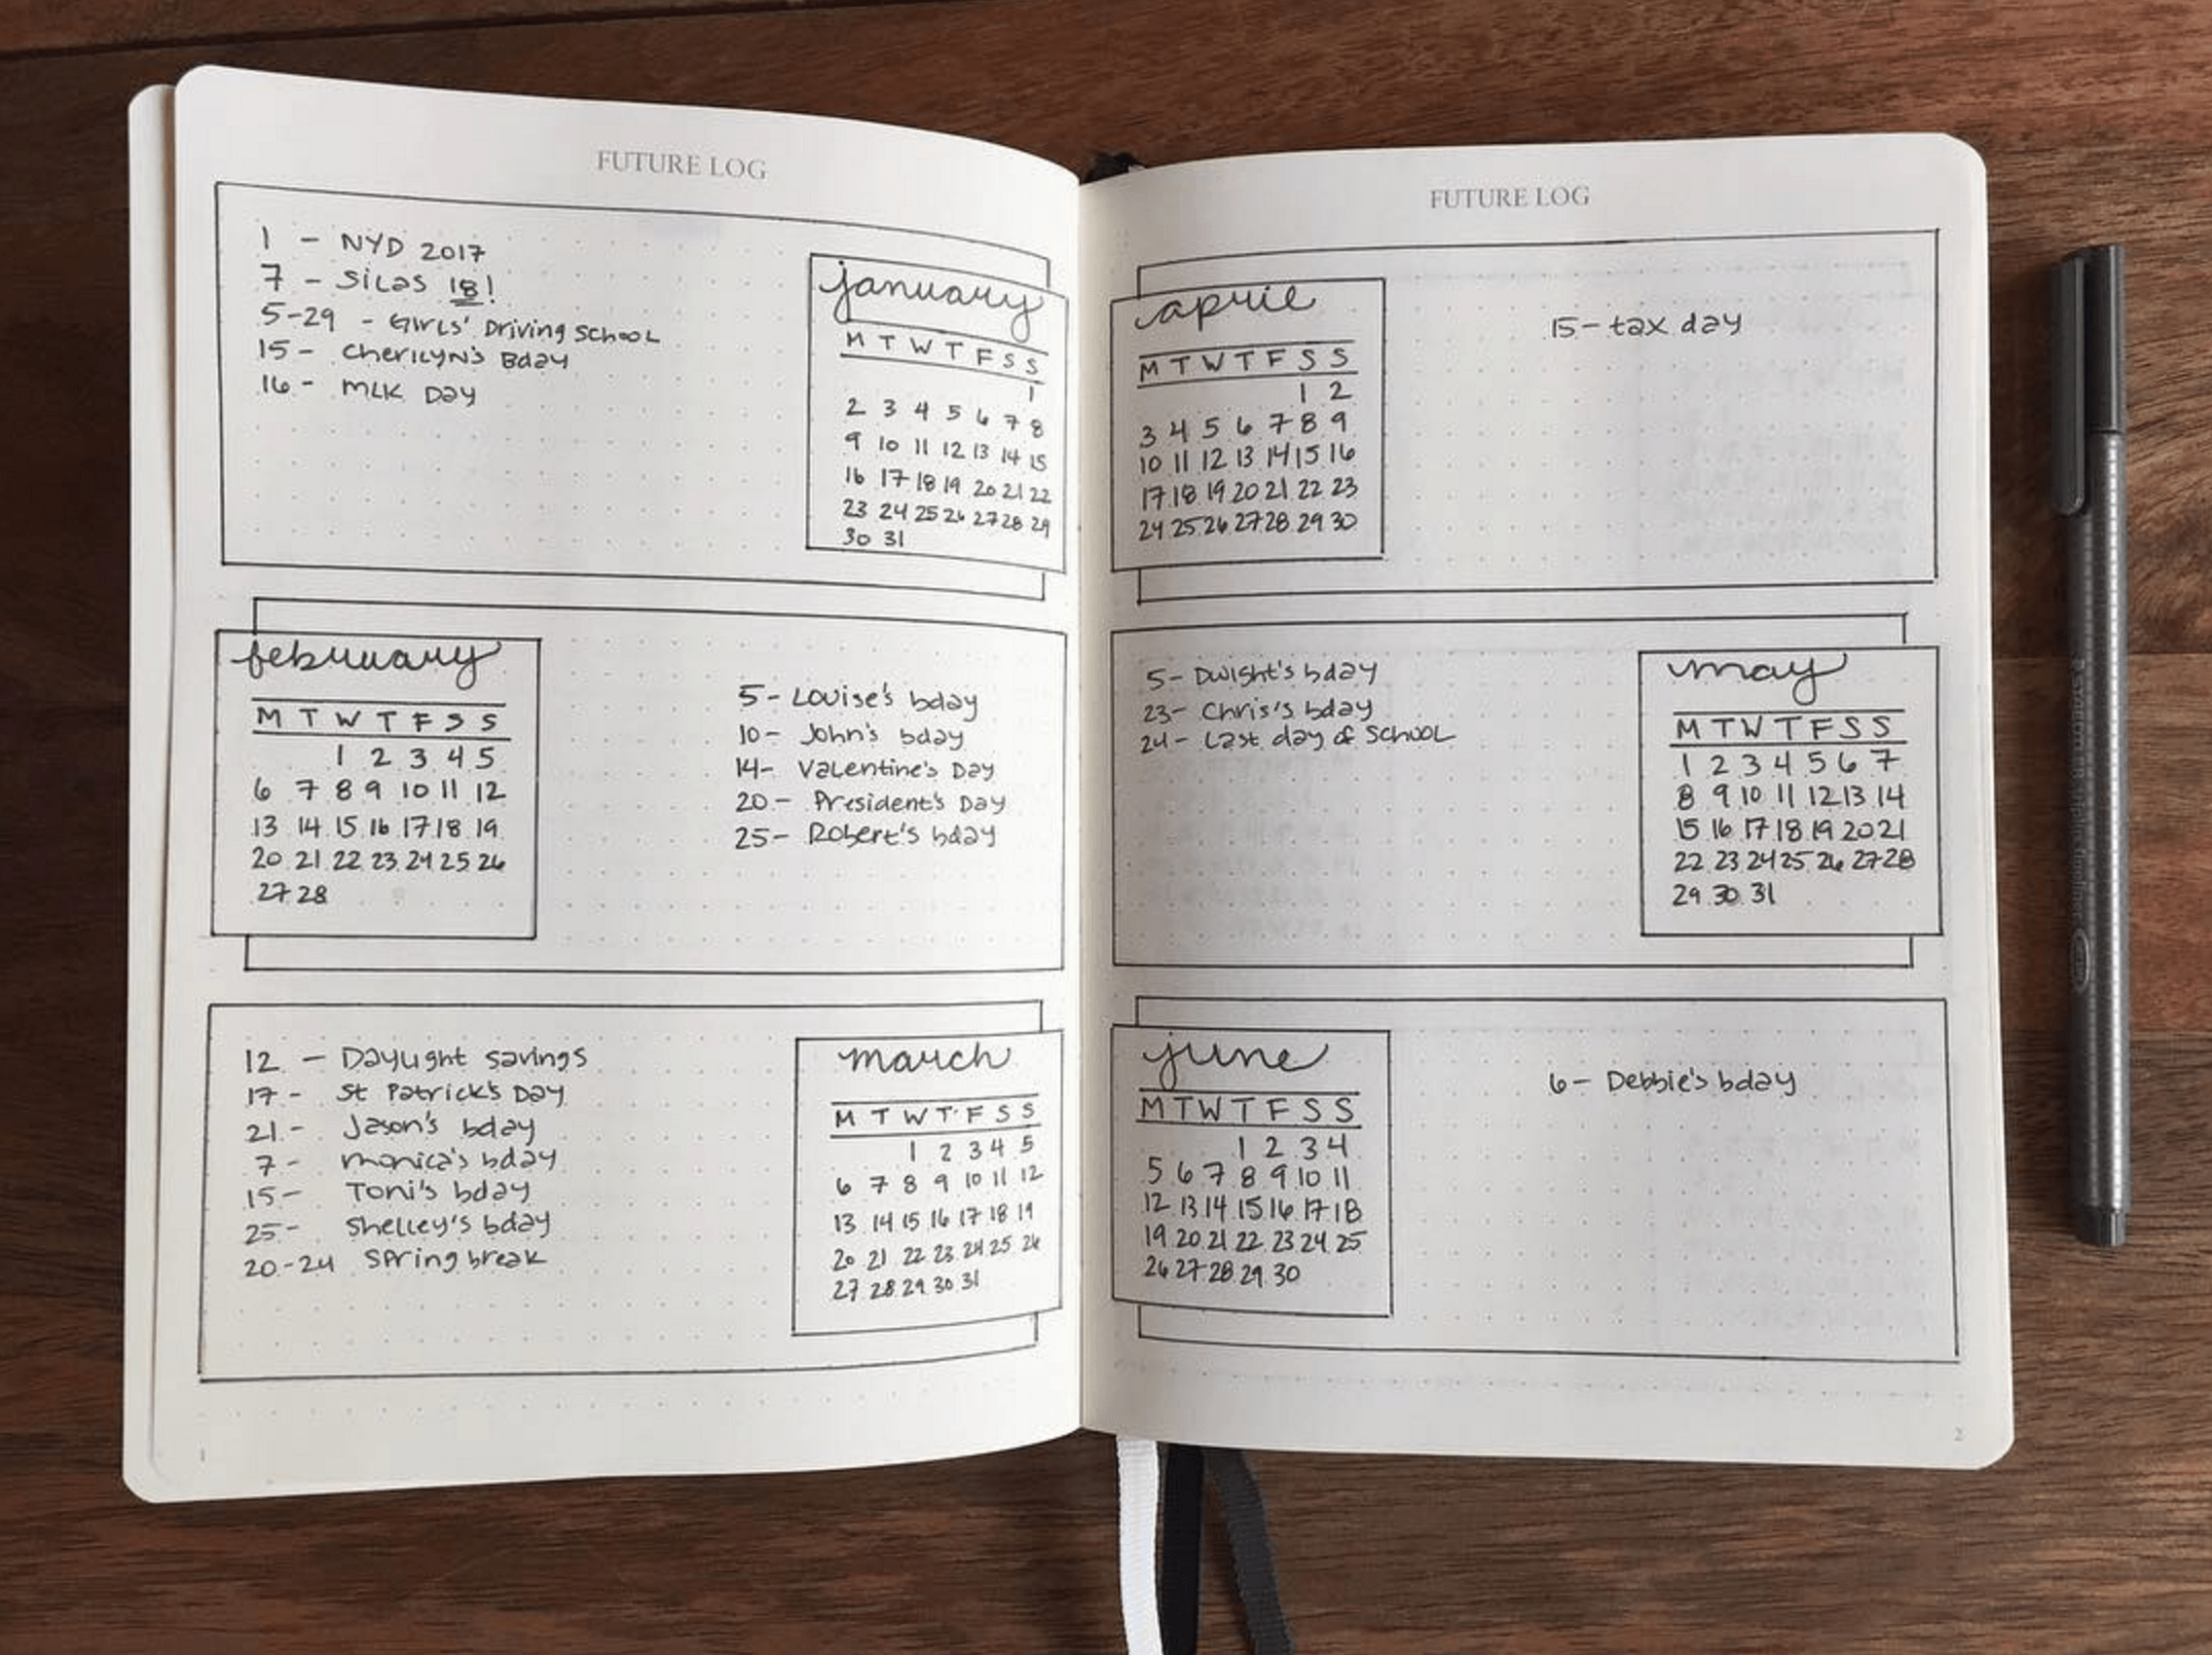 FUTURE LOG
1 - NYD 2017
7 - Silas 18!
5-29 - Girls' Driving School
15 - Cherilyn's Bday
16 - MLK Day
january
M T W T F S S
1
2 3 4 5 6 7 8
9 10 11 12 13 14 15
16 17 18 19 20 21 22
23 24 25 26 27 28 29
30 31
february
M T W T F S S
1 2 3 4 5
6 7 8 9 10 11 12
13 14 15 16 17 18 19
20 21 22 23 24 25 26
27 28
5- Louise's bday
10- John's bday
14- Valentine's Day
20- President's Day
25- Robert's bday
12 - Daylight savings
17- St Patrick's Day
21- Jason's bday
7- monica's bday
15- Toni's bday
25- Shelley's bday
20-24 Spring break
march
M T W T F S S
1 2 3 4 5
6 7 8 9 10 11 12
13 14 15 16 17 18 19
20 21 22 23 24 25 26
27 28 29 30 31
1
FUTURE LOG
april
M T W T F S S
1 2
3 4 5 6 7 8 9
10 11 12 13 14 15 16
17 18 19 20 21 22 23
24 25 26 27 28 29 30
15- tax day
5- Dwight's bday
23- Chris's bday
24- Last day of School
may
M T W T F S S
1 2 3 4 5 6 7
8 9 10 11 12 13 14
15 16 17 18 19 20 21
22 23 24 25 26 27 28
29 30 31
june
M T W T F S S
1 2 3 4
5 6 7 8 9 10 11
12 13 14 15 16 17 18
19 20 21 22 23 24 25
26 27 28 29 30
6- Debbie's bday
2
STAEDTLER